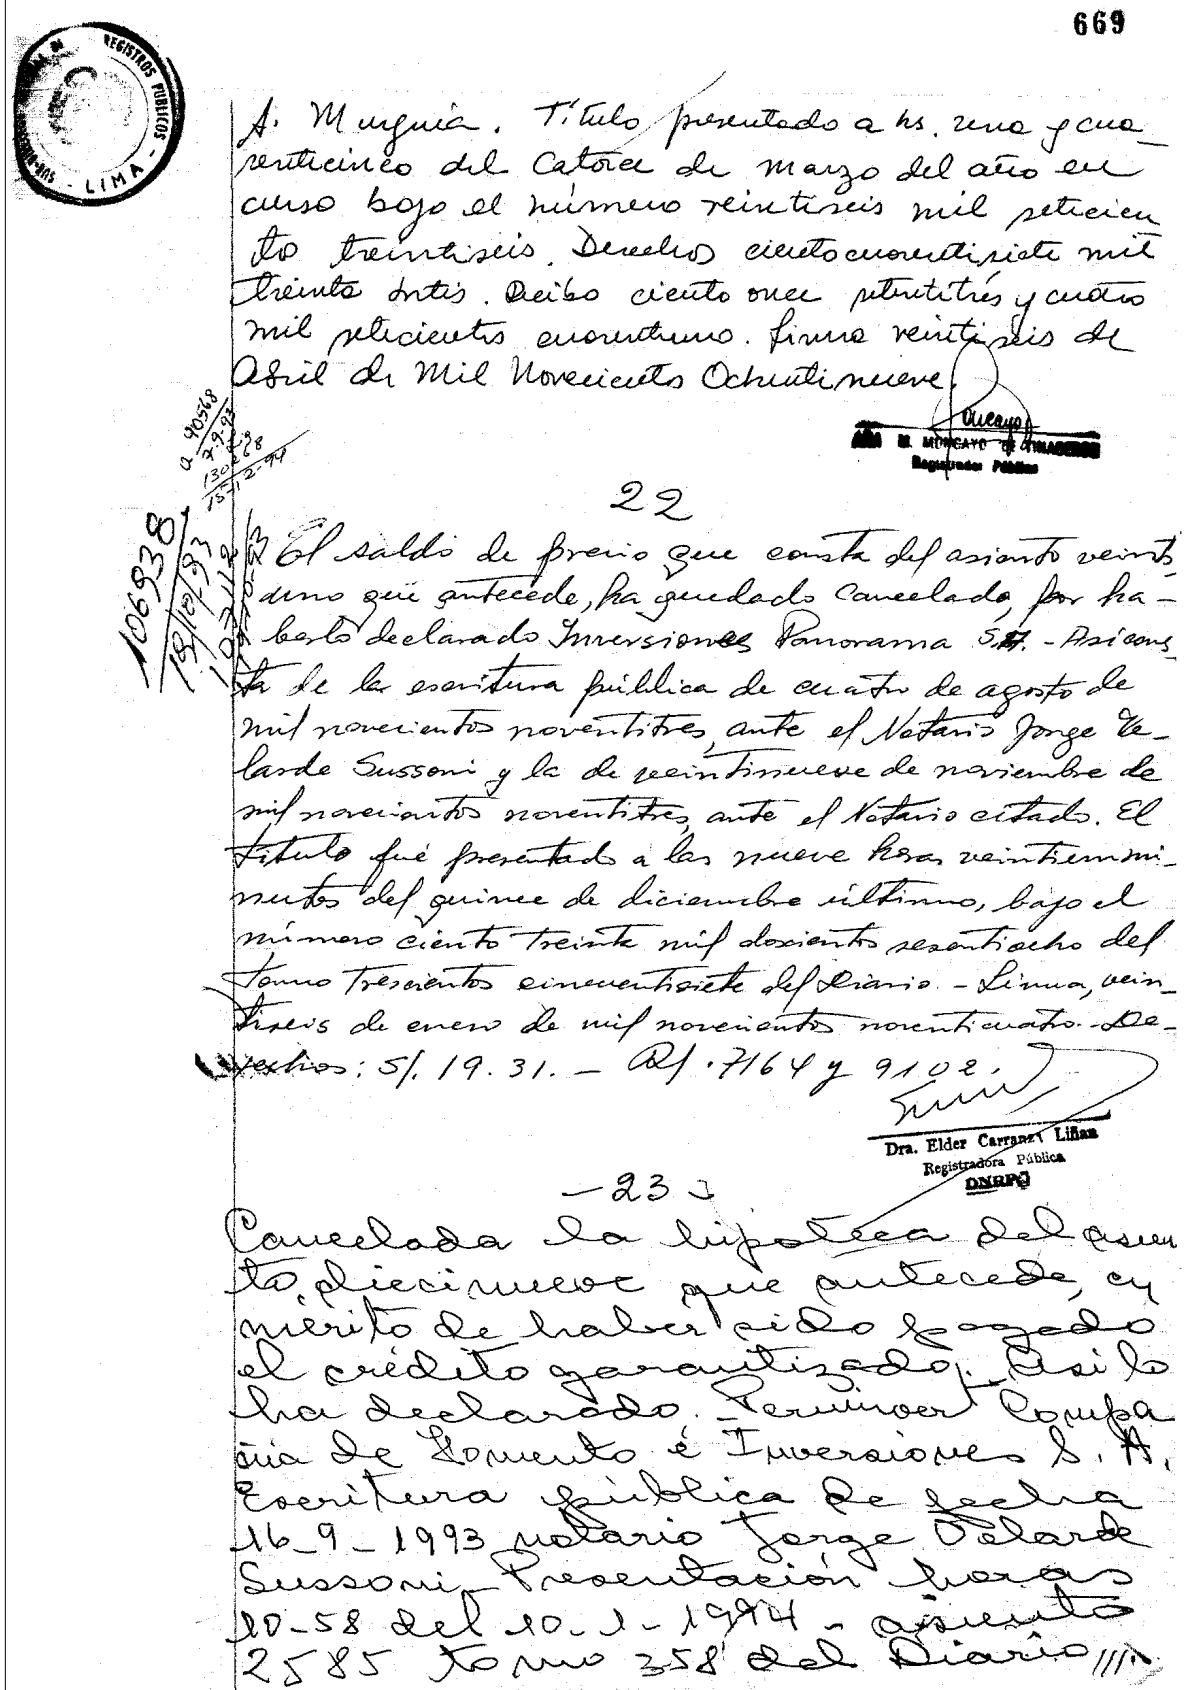 669
REGISTROS PUBLICOS - LIMA -
A. Murguia. Título presentado a hs. una y cua_
renticinco del Catorce de Marzo del año en
curso bajo el número veintiseis mil setecien
to treintiseis. Derechos cientocuarentisiete mil
treinta Intis. Recibo ciento once setentitrés y cuatro
mil setecientos cuarentiuno. Lima veintiseis de
Abril de Mil Novecientos Ochentinueve.
M. MONCAYO DE
Registrador Público
a 90568
7-9-93
130268
15-12-94
22
106938
18/10/93
El saldo de precio que consta del asiento veinti
uno que antecede, ha quedado Cancelado, por ha-
berlo declarado Inversiones Panorama S.A. - Asi cons
ta de la escritura pública de cuatro de agosto de
mil novecientos noventitres, ante el Notario Jorge Ve-
larde Sussoni y la de veintinueve de noviembre de
mil novecientos noventitres, ante el Notario citado. El
título fué presentado a las nueve horas veintiun mi-
nutos del quince de diciembre último, bajo el
número ciento treinta mil doscientos sesentiocho del
tomo trescientos cincuentisiete del Diario. - Lima, vein-
tiseis de enero de mil novecientos noventicuatro. - De-
rechos: S/. 19.31. - R/. 7164 y 9102.
Dra. Elder Carranza Liñan
Registradora Pública
ONRPJ
- 23 -
Cancelada la hipoteca del asien
to diecinueve que antecede, en
mérito de haber sido pagado
el crédito garantizado. Asi lo
ha declarado. Peruinver Compa
ñia de Fomento é Inversiones S. A.
Escritura pública de fecha
16-9-1993 notario Jorge Velarde
Sussoni - Presentación horas
10-58 del 10-1-1994 - asiento
2585 tomo 358 del Diario ////